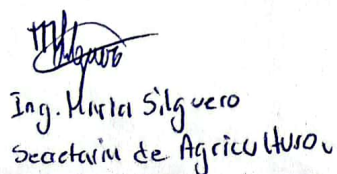 Ing. Maria Silguero
Secretaria de Agricultura